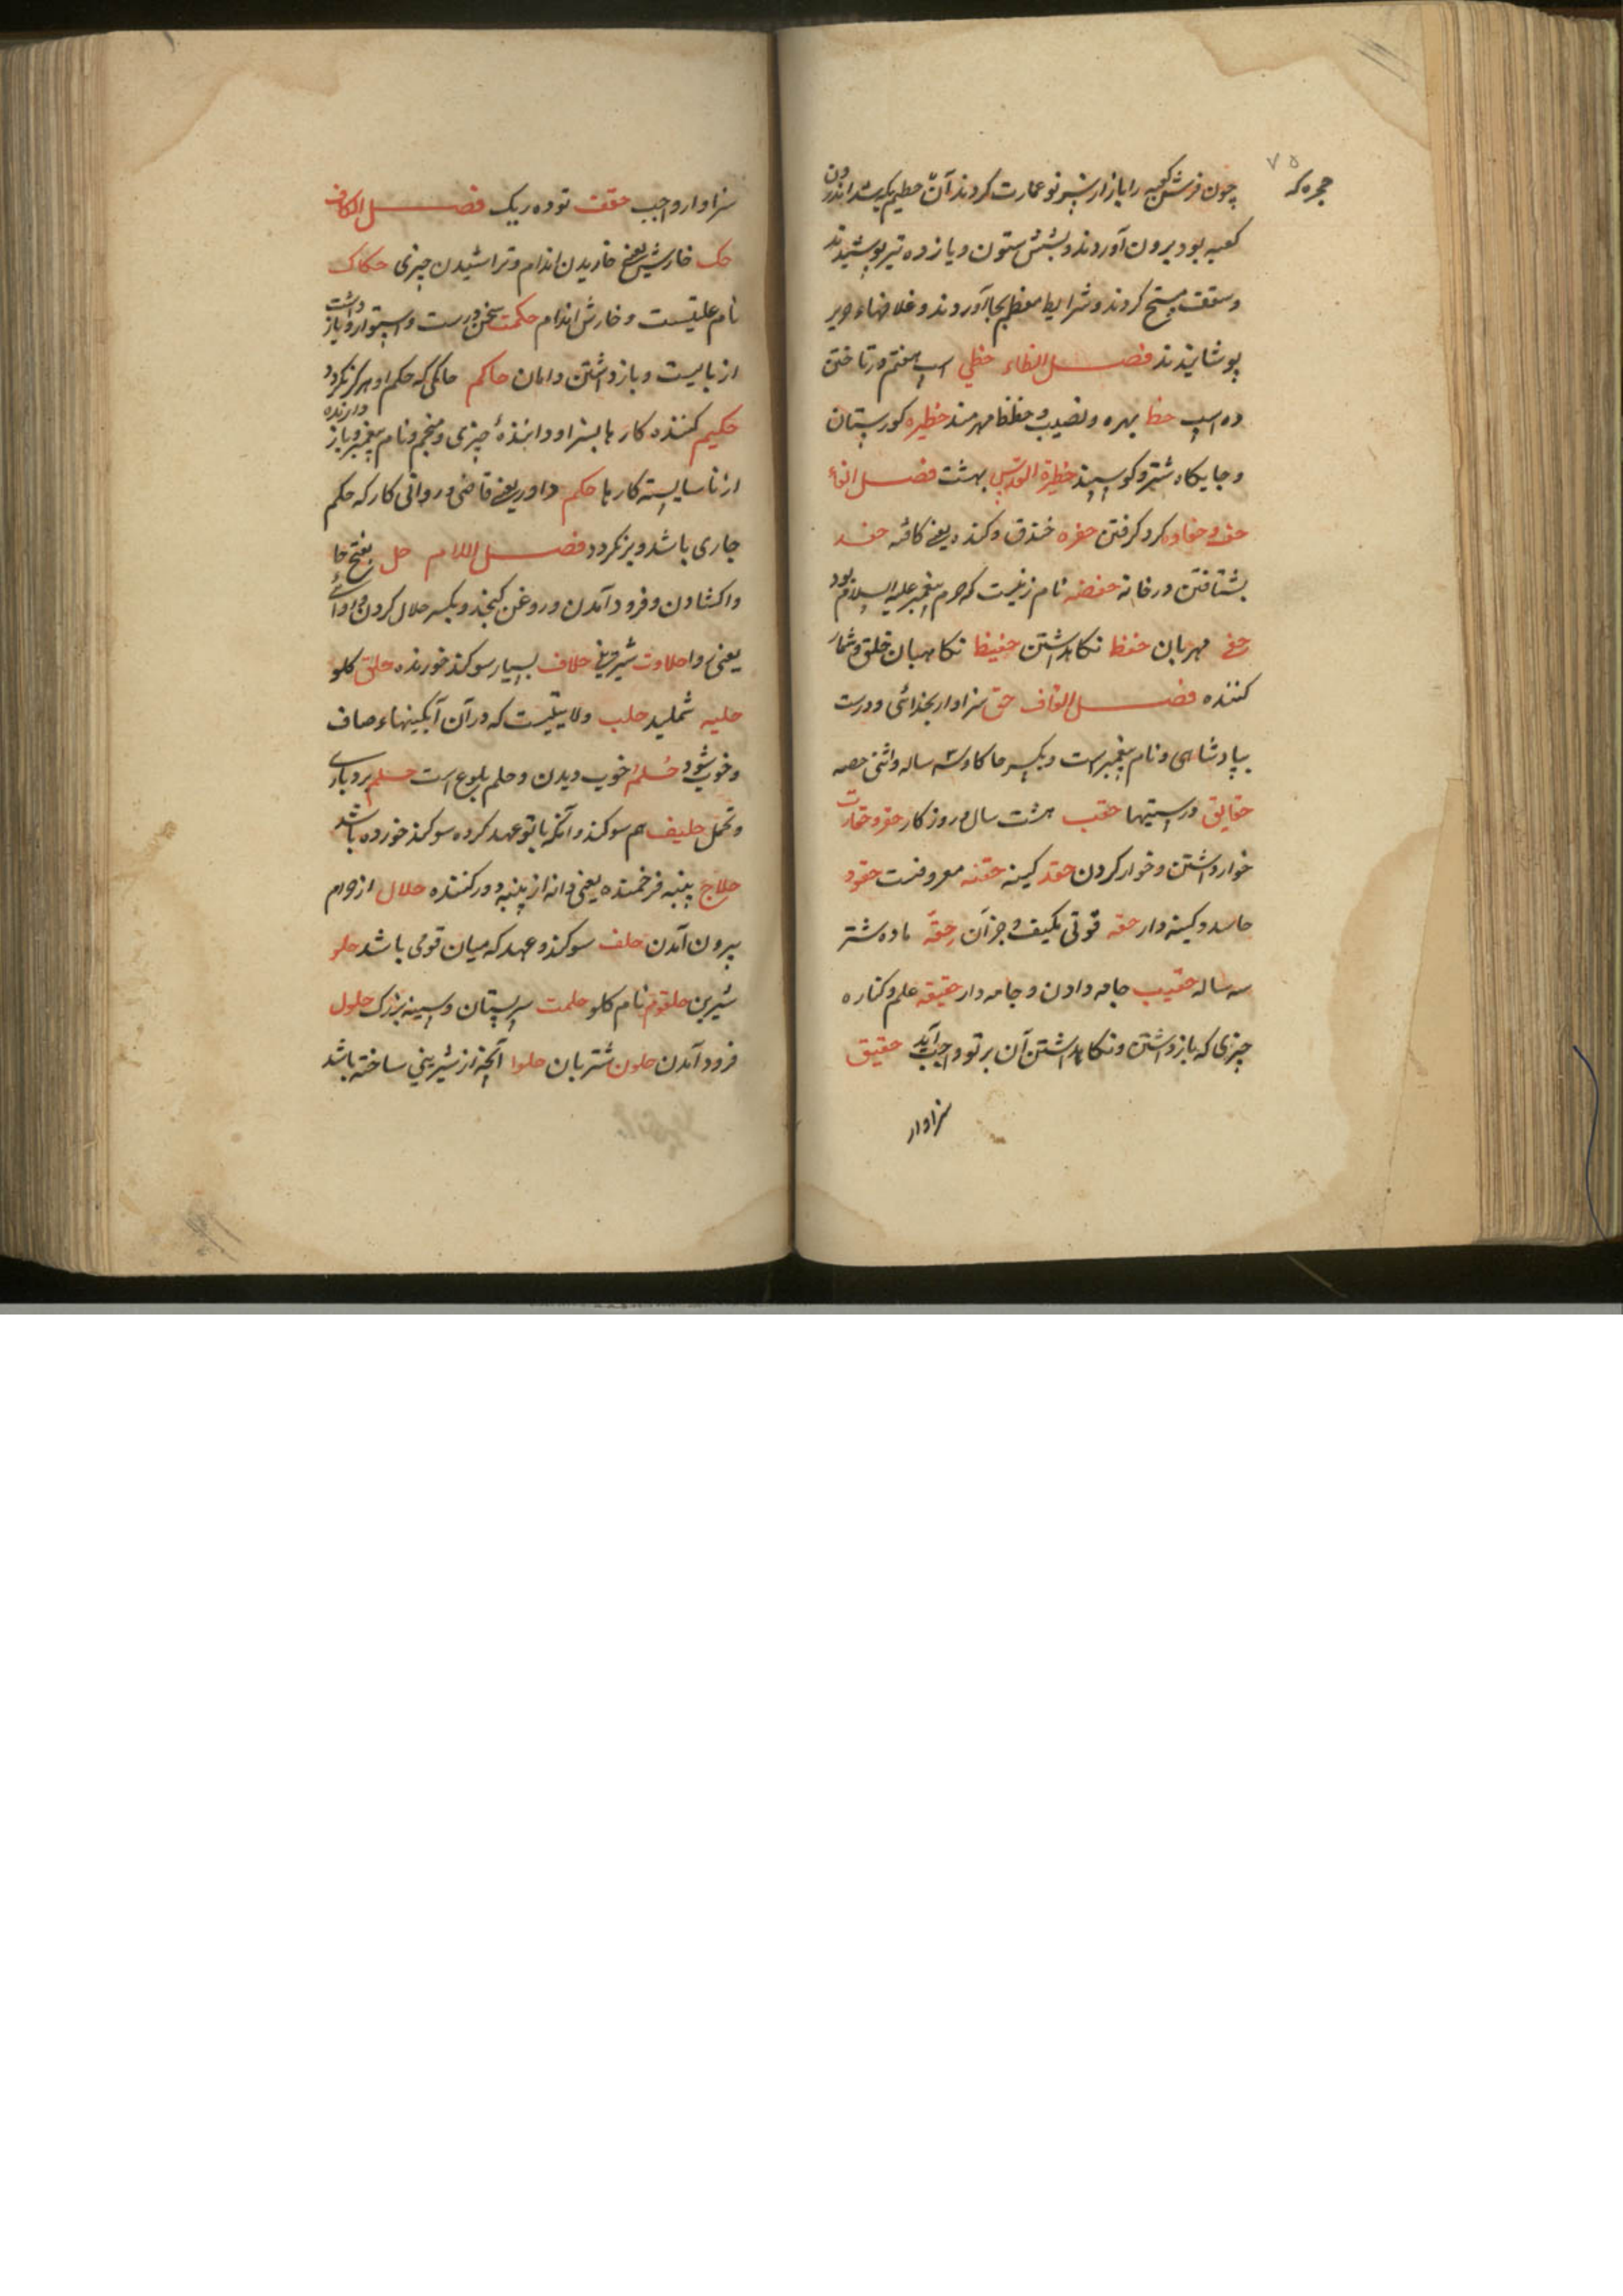 ۷۵
حجره که
چون قریش کعبه را باز از سر نو عمارت کردند آن حطیم که بیشد اندرون
کعبه بود بیرون آوردند و بشش ستون و یازده تیر پوشیدند
و سقف مسطح کردند و شرایط معظم بجا آوردند و غلافهاء حریر
پوشانیدند فصل الظاء حظی اسپ هفتم در تاختن
ده اسپ حظ بهره و نصیب و محظوظ بهرمند حظیره کورستان
و جایکاه شتر و کوسپند حظیرة القدس بهشت فصل الفاء
حف و حفاوه کرد کرفتن حفره خندق و کنده یعنی کافته حفد
بشتافتن در خانه حفصه نام زنیست که حرم پیغمبر علیه السلام بود
حفی مهربان حفظ نکاهداشتن حفیظ نکاهبان خلق و شمار
کننده فصل القاف حق سزاوار بخدائی و درست
بپادشاهی و نام پیغمبر است و بکسر حا کاو سه ساله و اثنی حصه
حقایق درستیها حقب هشت سال و روزکار حقر و حقارت
خوار داشتن و خوار کردن حقد کینه حقنه معروفست حقود
حاسد و کینه دار حقه قوتی یکیف و جز آن حِقّه ماده شتر
سه ساله حقیب جامه دادن و جامه دار حقیقه علم و کناره
چیزی که باز داشتن و نکاهداشتن آن بر تو واجب آید حقیق
سزاوار
سزاوار و واجب حقف توده ریک فصل الکاف
حک خارش یعنی خاریدن اندام و تراشیدن چیزی حکاک
نام علتیست و خارش اندام حکمت سخن درست و استوار و باز داشت
از بایست و باز داشتن دامان حاکم حاکمی که حکم او هرکز نکردد
حکیم کننده کارها بسزا و دانندهٔ چیزی و منجم و نام پیغمبر و باز دارنده
از ناشایسته کارها حکم داور یعنی قاضی و روائی کار که حکم
جاری باشد و بر نکردد فصل اللام حل بفتح حا
واکشادن و فرود آمدن و روغن کنجد و بکسر حلال کردن و روائے
یعنی روا حلاوت شیرینی حلاف بسیار سوکند خورنده حلق کلو
حلبه شملید حلب ولایتیست که در آن آبکینهاء صاف
و خوب شود حُلم خوب دیدن و حلم بلوغ است حلم بردباری
و تحمل حلیف هم سوکند و آنکه با تو عهد کرده سوکند خورده باشد
حلاج پنبه فرخمنده یعنی دانه از پنبه دور کننده حلال از حرام
بیرون آمدن حلف سوکند و عهد که میان قومی باشد حلو
شیرین حلقوم نام کلو حلمت سر پستان و سینه بزرک حلول
فرود آمدن حلون شتربان حلوا آنچه از شیرینی ساخته باشد